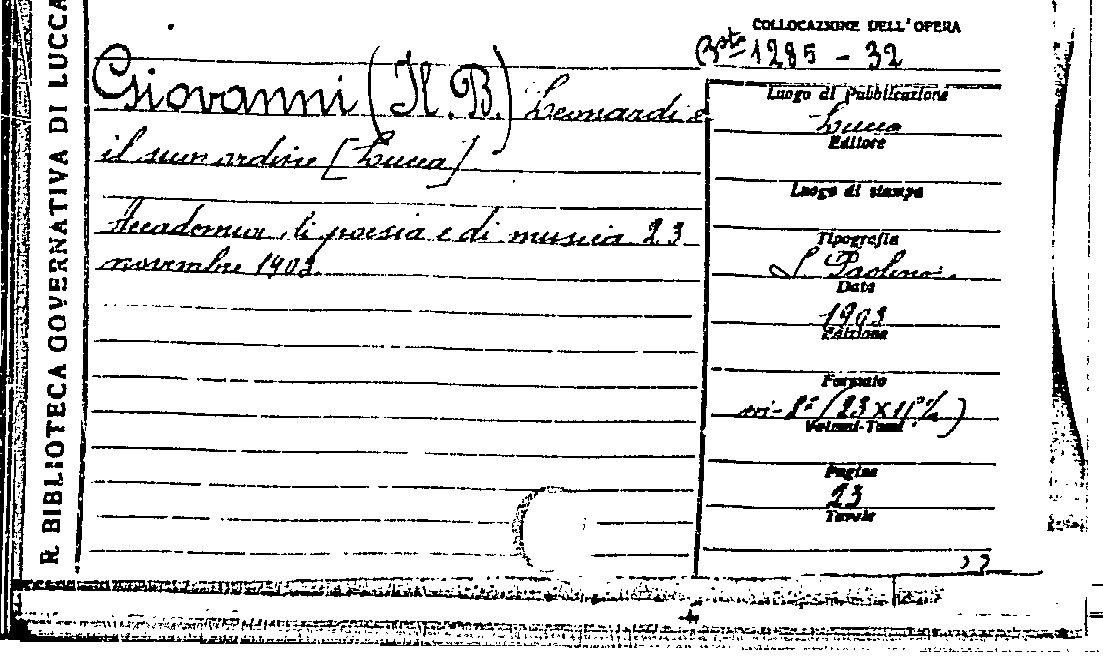 R. BIBLIOTECA GOVERNATIVA DI LUCCA
COLLOCAZIONE DELL'OPERA
Bsta 1285 - 32
Giovanni (Il B.) Leonardi e
il suo ordine [Lucca]
Accademia di poesia e di musica 23
novembre 1903.
Luogo di Pubblicazione
Lucca
Editore
Luogo di stampa
Tipografia
S. Paolino.
Data
1903
Edizione
Formato
in-8° (23 X
Volumi-Tomi
Pagine
23
Tavole